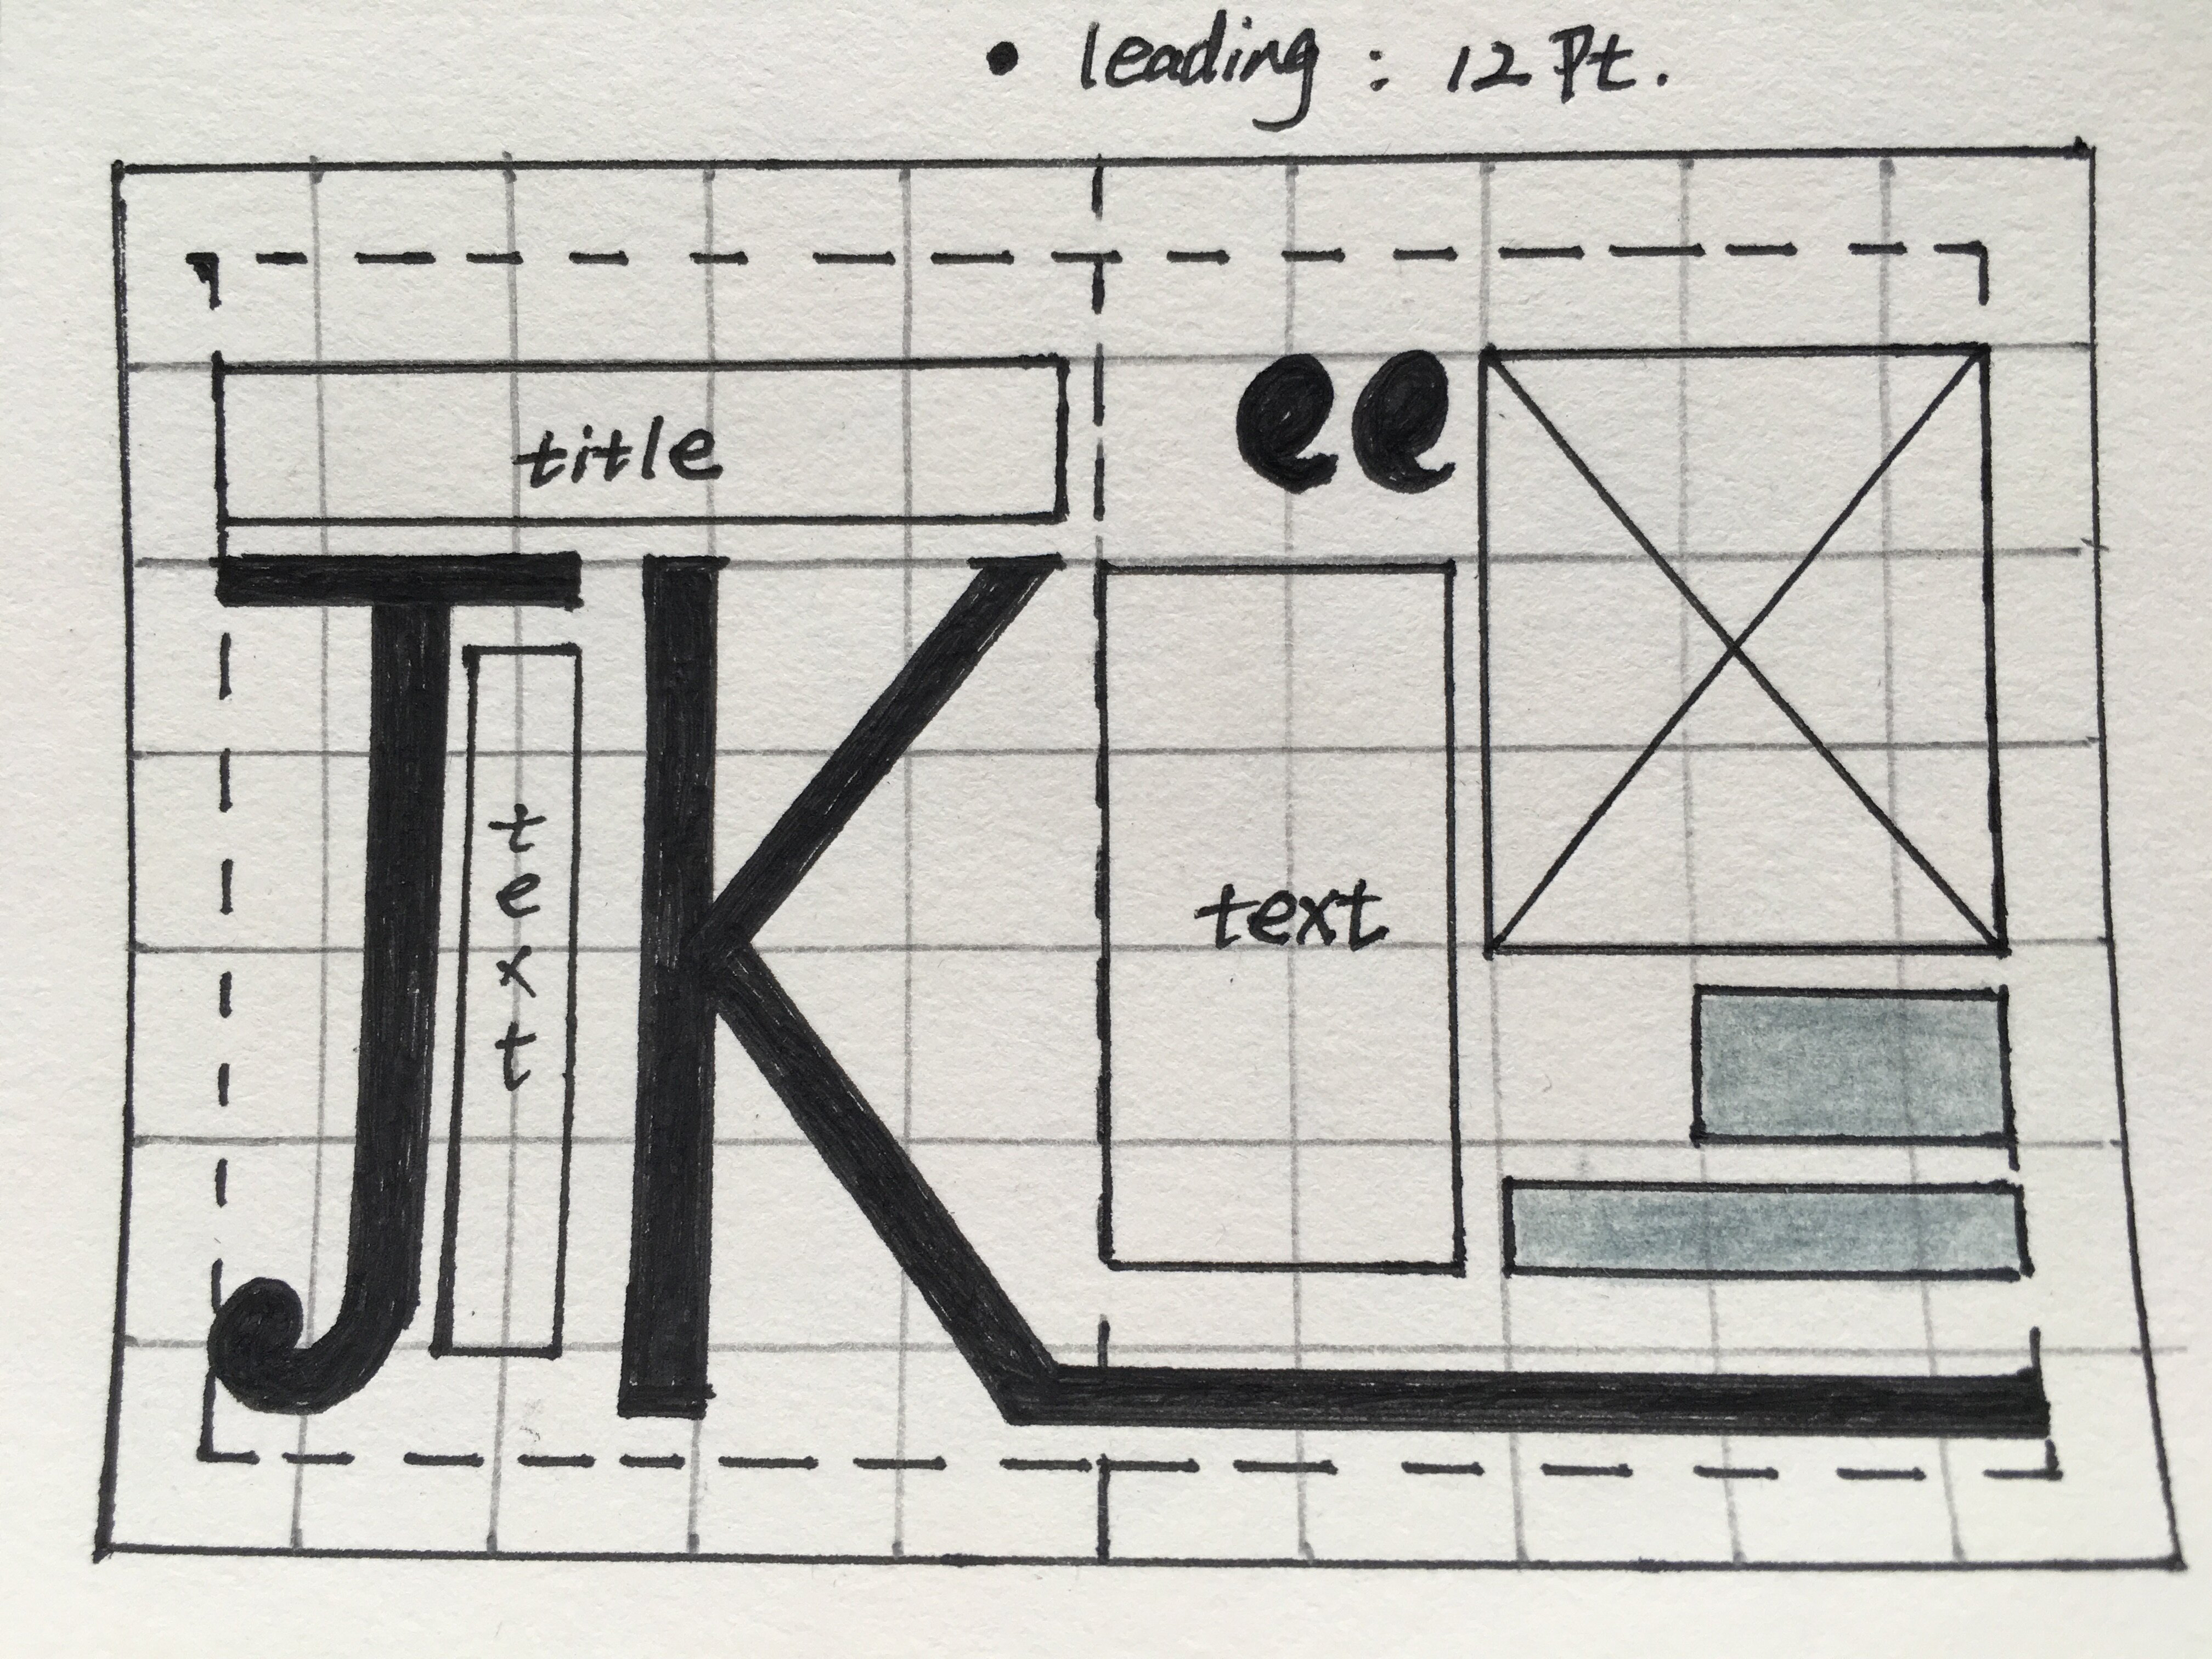 • leading : 12 Pt.
title
JK
text
“
text